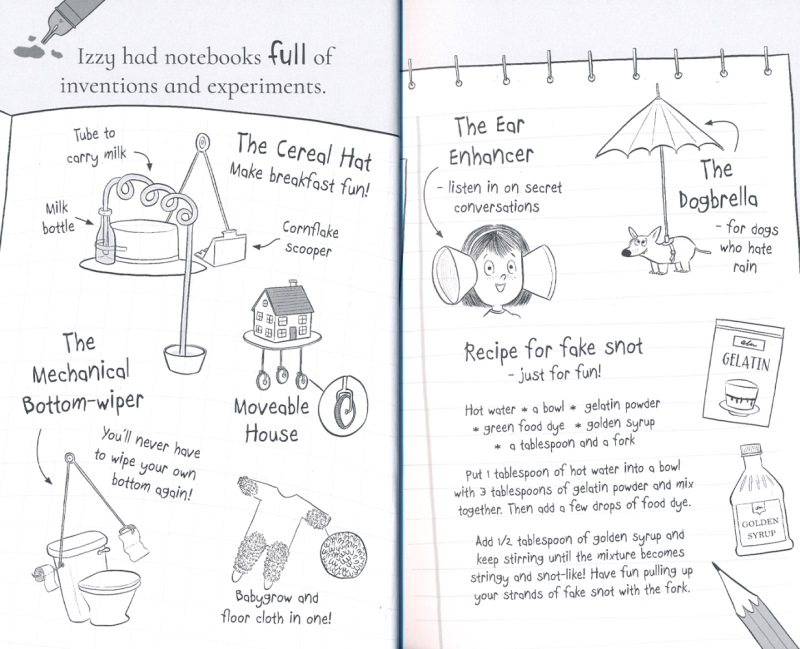 Izzy had notebooks full of
inventions and experiments.
Tube to
carry milk
The Cereal Hat
Make breakfast fun!
Milk
bottle
Cornflake
scooper
The
Mechanical
Bottom-wiper
Moveable
House
You'll never have
to wipe your own
bottom again!
Babygrow and
floor cloth in one!
The Ear
Enhancer
- listen in on secret
conversations
The
Dogbrella
- for dogs
who hate
rain
Recipe for fake snot
- just for fun!
Hot water * a bowl * gelatin powder
* green food dye * golden syrup
* a tablespoon and a fork
Put 1 tablespoon of hot water into a bowl
with 3 tablespoons of gelatin powder and mix
together. Then add a few drops of food dye.
Add 1/2 tablespoon of golden syrup and
keep stirring until the mixture becomes
stringy and snot-like! Have fun pulling up
your strands of fake snot with the fork.
GELATIN
GOLDEN
SYRUP